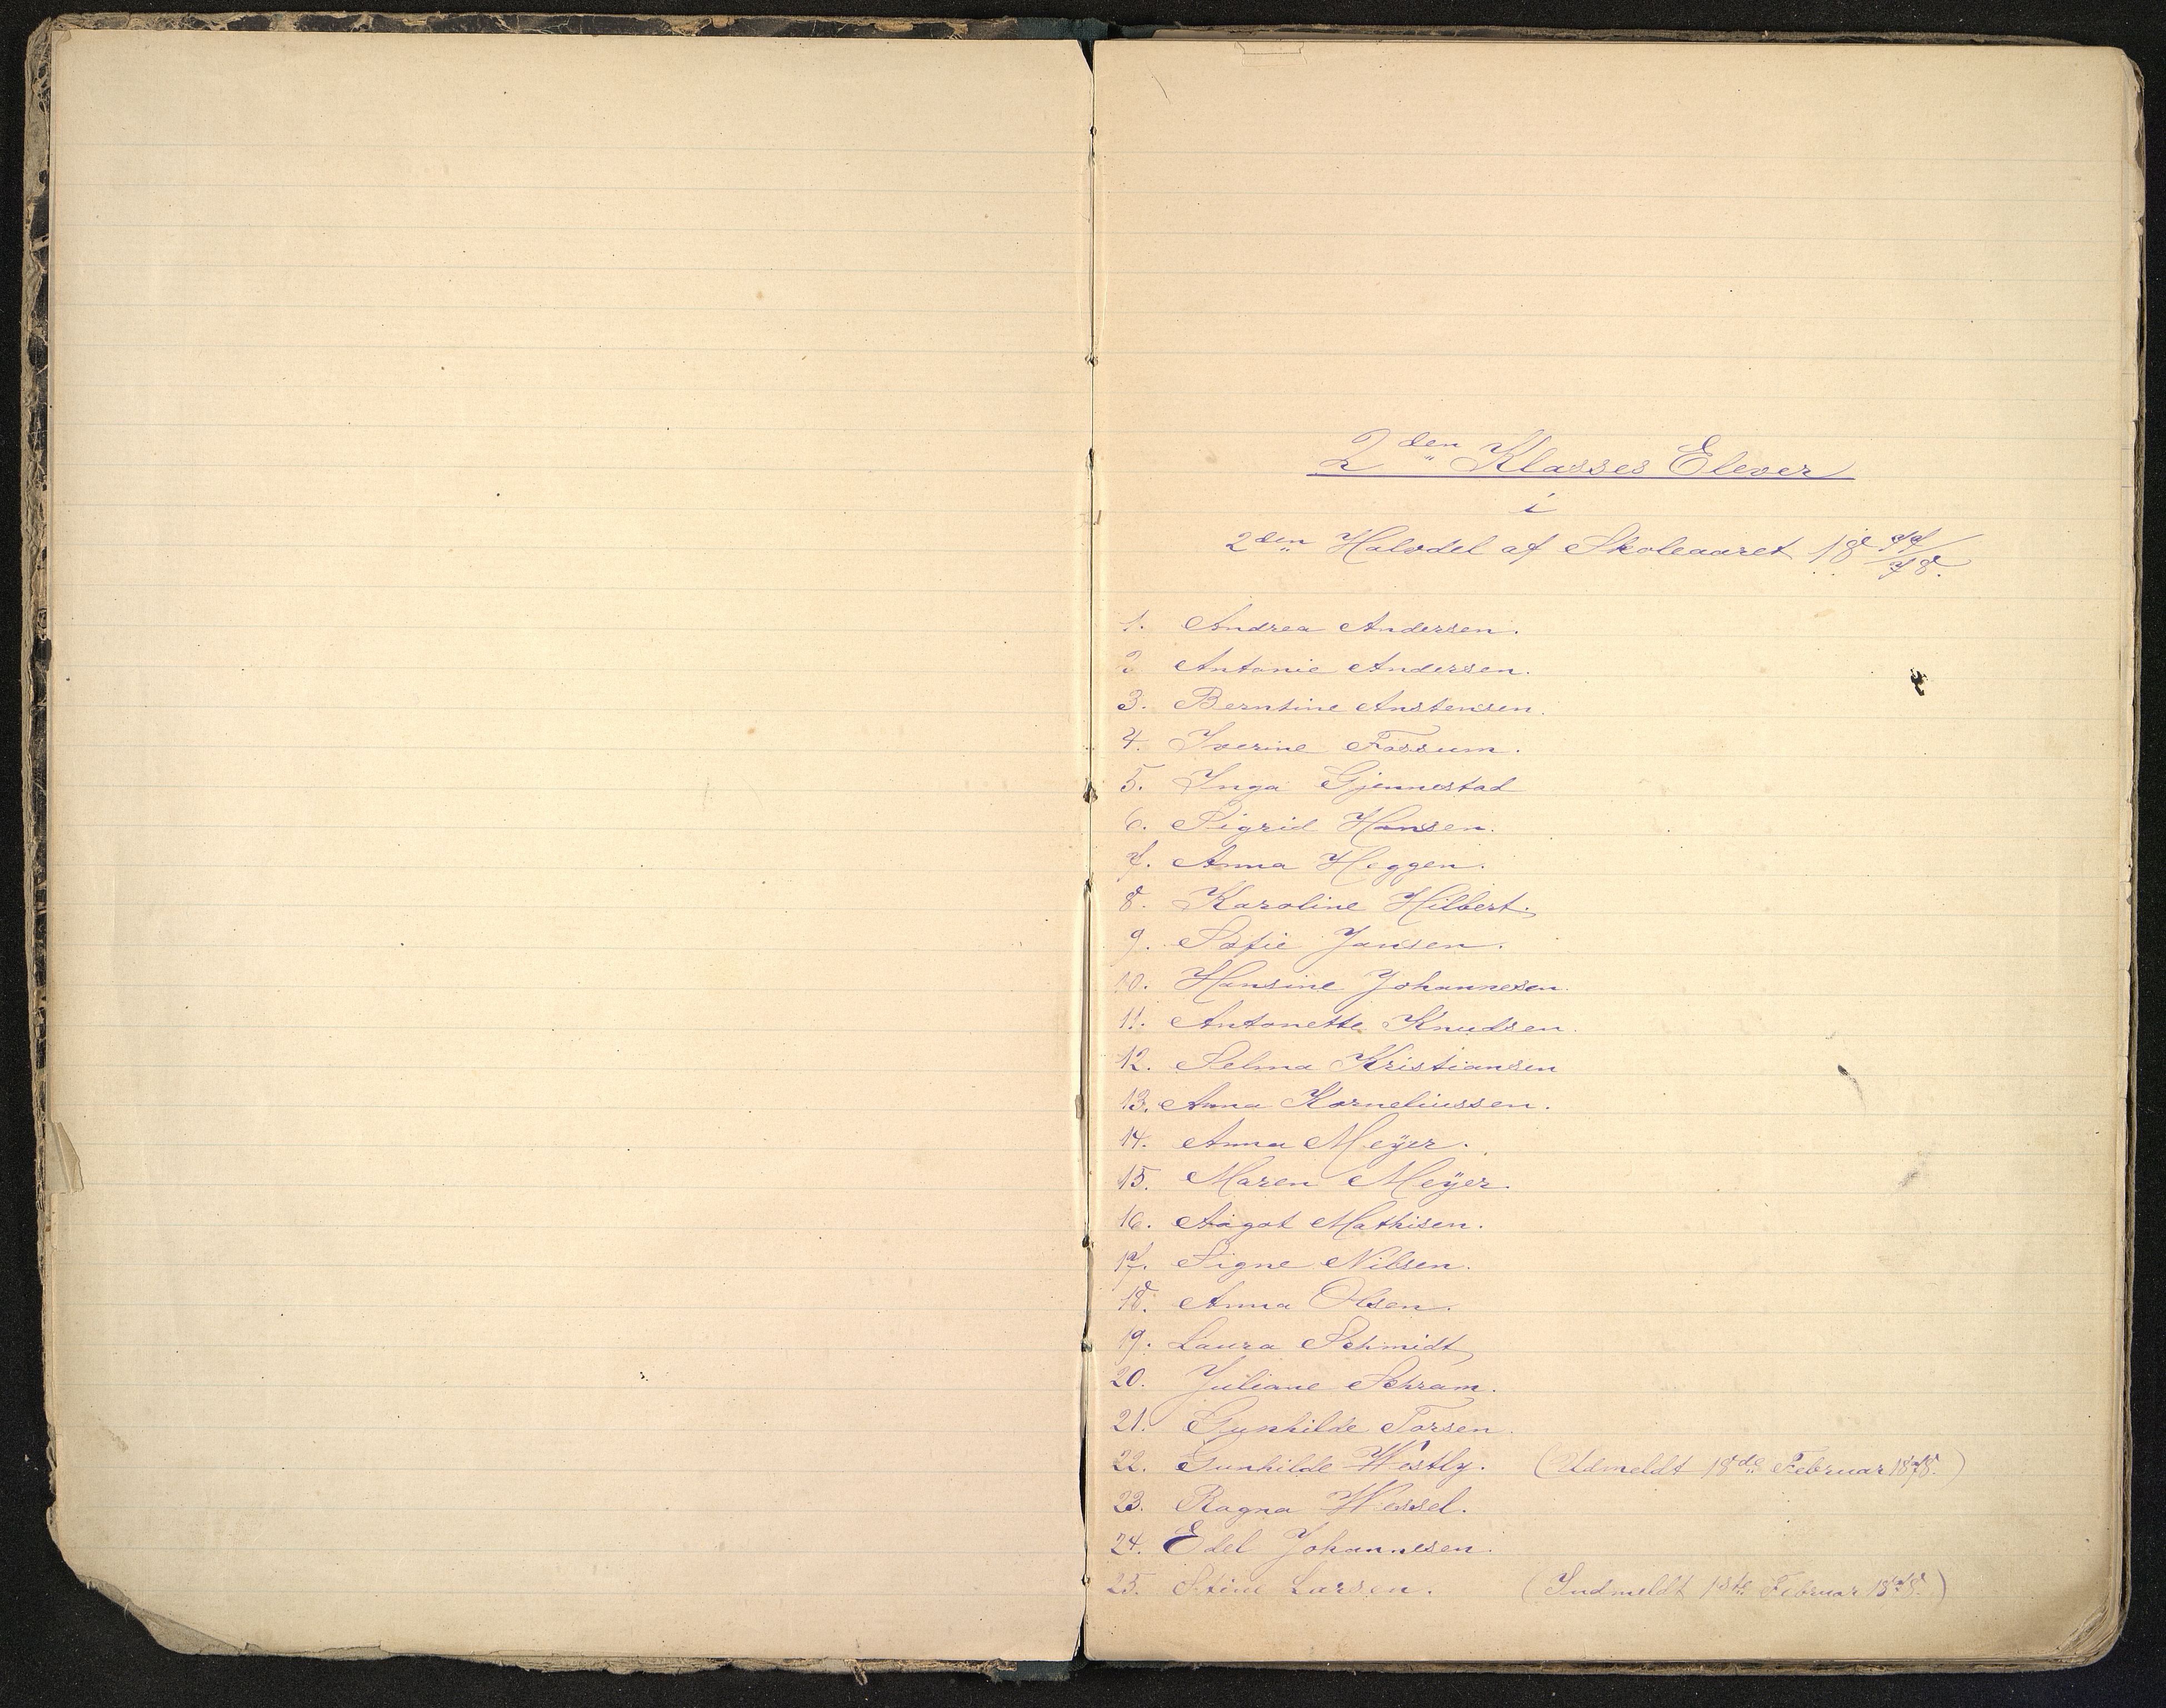 2den Klasses Elever
i
2den Halvdel af Skoleaaret 18 77/78.
1. Andrea Andersen.
2 Antonie Andersen.
3. Berntine Anstensen.
4. Iverine Fossum.
5. Inga Gjennestad
6. Sigrid Hansen.
7. Anna Heggen.
8. Karoline Hilbert.
9. Sofie Jansen.
10. Hansine Johannesen.
11. Antonette Knudsen.
12. Selma Kristiansen
13. Anna Korneliussen.
14. Anna Meÿer.
15. Maren Meÿer.
16. Aagot Mathisen.
17. Signe Nilsen.
18. Anna Olsen.
19. Laura Schmidt
20. Juliane Schram.
21. Gunhilde Torsen.
22. Gunhilde Westly. (Udmeldt 18de Februar 1878.)
23. Ragna Wessel.
24. Edel Johannesen.
25. Stine Larsen. (Indmeldt 1ste Februar 1878.)